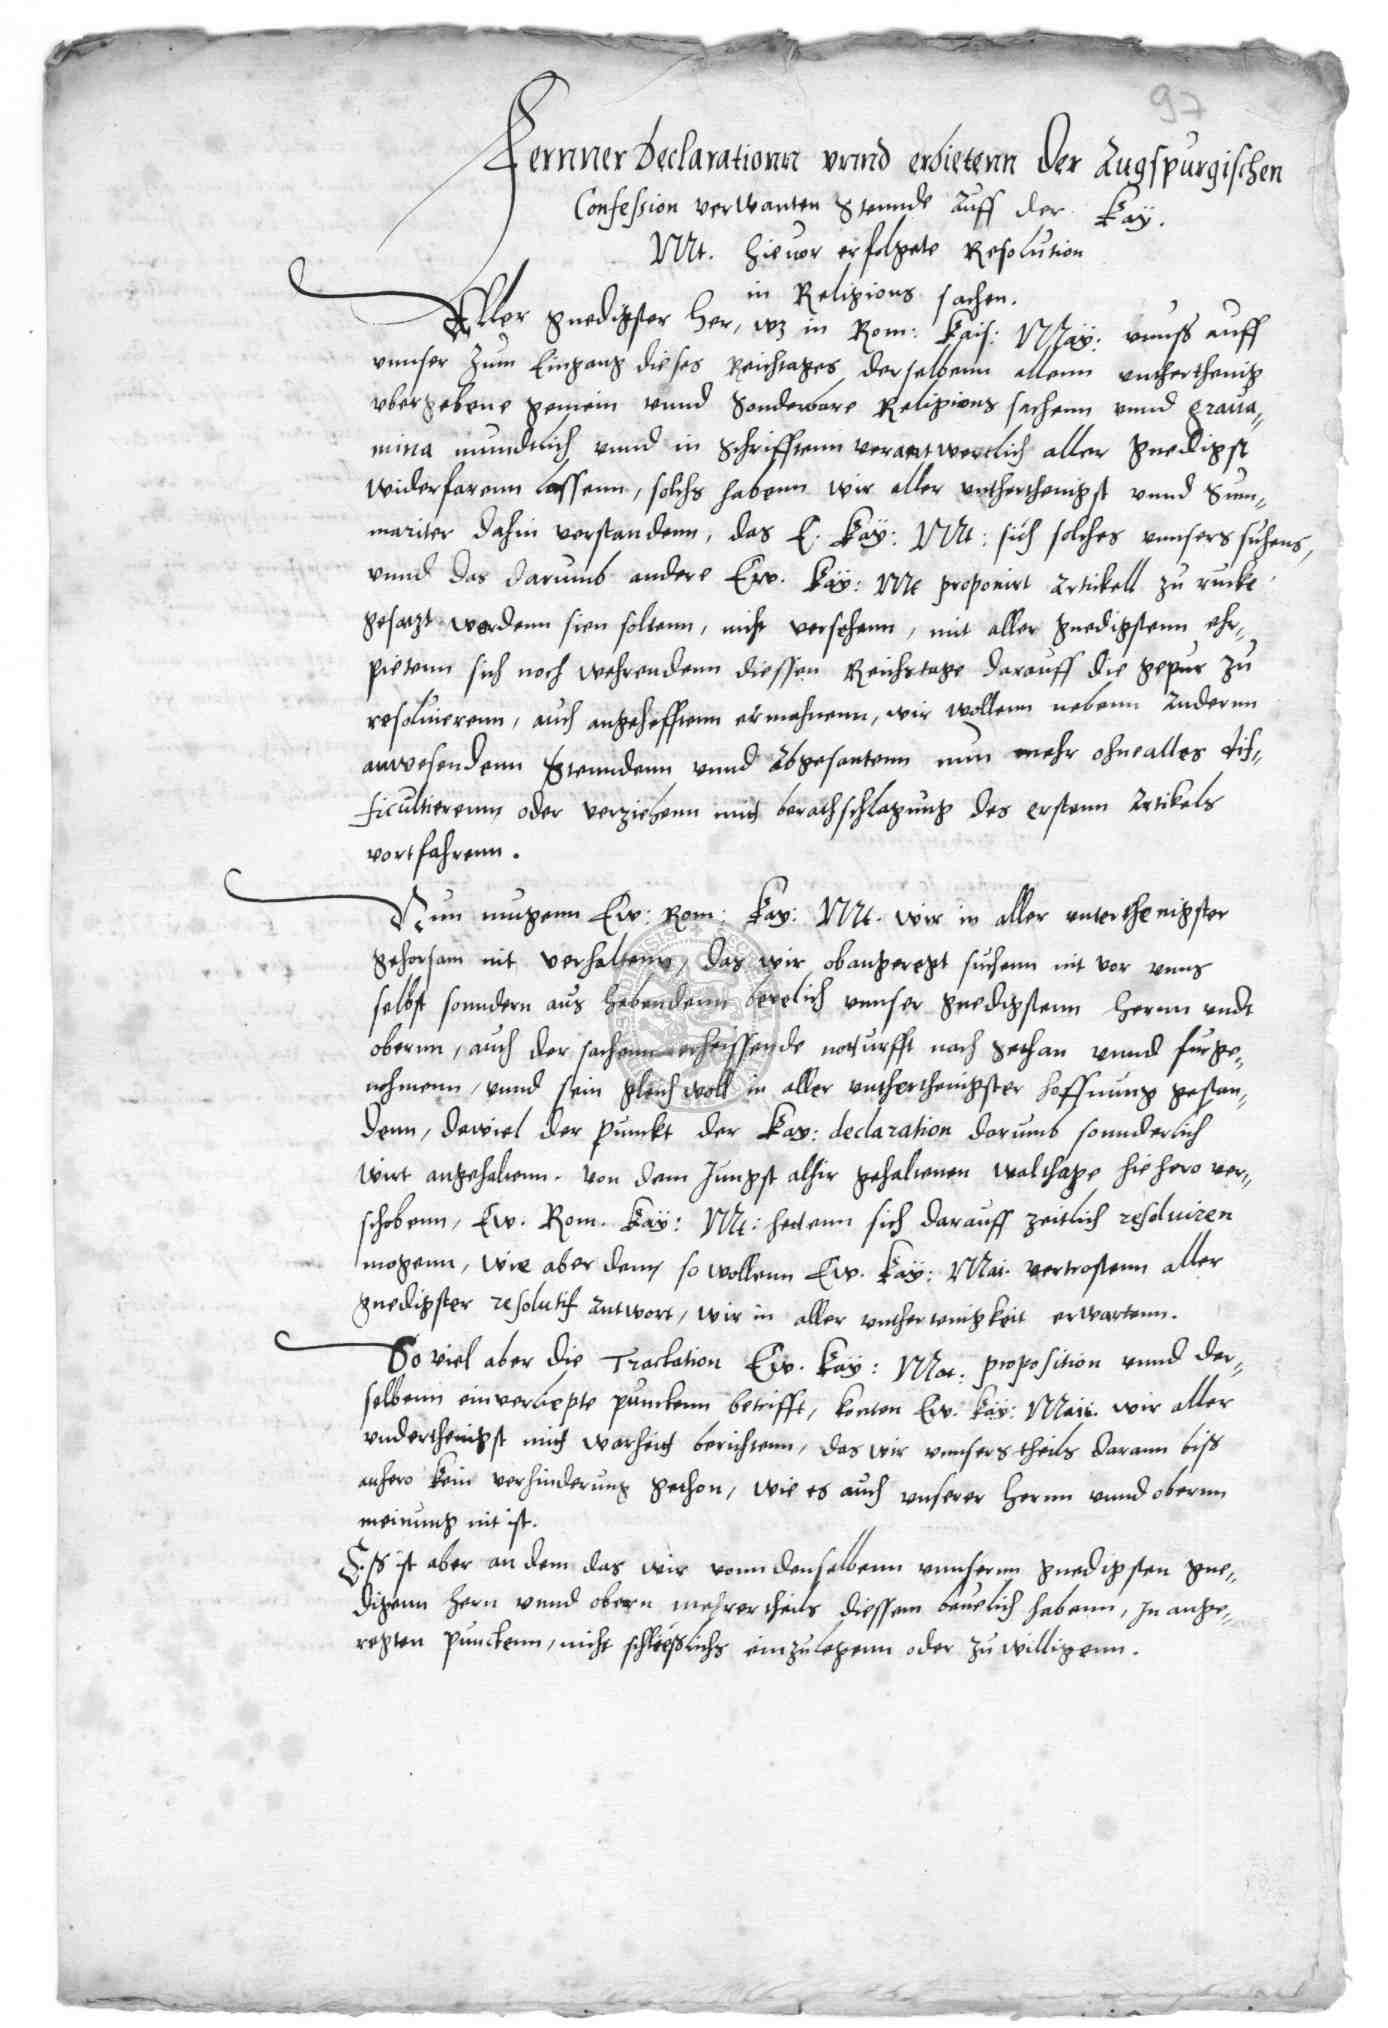 97
Fernner declarationn vnnd erbietenn der Augspurgischen
Confession verwanten Stennde Auff der Kaÿ.
Mt. hieuor erfolgete Resolution
in Religions sachen.
Aller gnedigster her, wz in Rom: Kais: Maÿ: vnnss auff
vnnser zum Eingang dieses Reichtages derselbenn allenn vnthertheinig
vbergebene gemein vnnd Sonderbare Religions sachenn vnnd graua„
mina mundtlich vnnd in Schrifftenn verantwortlich aller gnedigst
widerfarenn lassenn, solchs habenn wir aller vntherthenigst vnnd Sum„
mariter dahin verstandenn, das E. Kaÿ: Mt: sich solches vnnsers suchens,
vnnd das darumb andere Ew. Kaÿ: Mt proponirt Artickell zu rucke
gesatzt werdenn sien soltenn, nicht versehenn, mit aller gnedigstenn ehr„
pietenn sich noch wehrendenn diessen Reichstage darauff die gepur zu
resoluierenn, auch angehefftenn ermahnenn, wir wollenn nebenn Andernn
anwesendenn Stenndenn vnnd Abgesantenn nun mehr ohne alles dif„
ficultierenn oder verziehenn mit berathschlagung des erstenn Artikels
vortfahrenn.
Nun mugenn Ew: Rom: Kay: Mt. wir in aller vnterthenigster
gehorsam nit verhaltenn, das wir obangeregt suchenn nit vor vnns
selbst sonndern aus habendenn beuelich vnnser gnedigstenn hernn vndt
obernn, auch der sachenn erheissende notturfft nach gethan vnnd furge„
nohmenn, vnnd sein gleich woll in aller vntherthenigster hoffnung gestan„
denn, dewiel der Punckt der Kay: declaration darumb sonnderlich
wirt angehaltenn. von dem Jungst alhir gehaltenen walthage hiehero ver„
schobenn, Ew. Rom. Kaÿ: Mt: hettenn sich darauff zeitlich resoluiren
mogenn, wie aber dem, so wollenn Ew. Kaÿ: Mai. vertrostenn aller
gnedigster resolutif Antwort, wir in aller vnthertenigkeit erwartenn.
So viel aber die Tractation Ew. Kaÿ: Mat: proposition vnnd der„
selbenn einverliepte punckenn betrifft, konten Ew. Kaÿ: Mait. wir aller
vnderthenigst mit warheit berichtenn, das wir vnnsers theils darann biss
anhero kein verhinderung gethon, wie es auch vnserer hernn vnnd obernn
meinung nit ist.
Ess ist aber an dem das wir vonn denselbenn vnnsernn gnedigsten gne„
digenn hern vnnd obern mehrertheils diessenn beuelich habenn, In ange„
regten Punckenn, nicht schliesslichs einzulegenn oder zu willigenn.